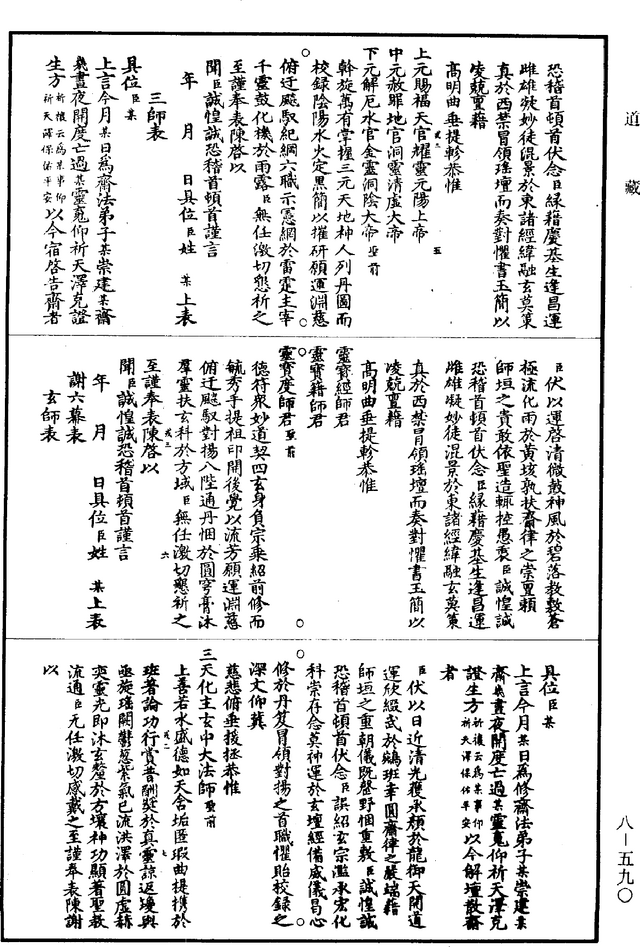 道藏
恐稽首頓首伏念臣緣藉慶基生逢昌運
雌雄凝妙徒混景於東諸經緯融玄莫策
真於西禁冒領瑤壇而奏對懼書玉簡以
凌兢稟藉
高明曲垂提軫恭惟
上元賜福天官耀靈元陽上帝
中元赦罪地官洞靈清虛大帝
下元解厄水官金靈洞陰大帝聖前
斡旋萬有掌握三元天地神人列丹圖而
校錄陰陽水火定黑簡以摧研願運淵慈
俯迂飈馭紀綱六職示憲網於雷霆主宰
千靈鼓化機於雨露臣無任激切懇祈之
至謹奉表陳啓以
聞臣誠惶誠恐稽首頓首謹言
年月日具位臣姓某上表
三師表
具位臣某
上言今月某日爲齋法弟子某崇建某齋
幾晝夜開度亡過某靈寬仰祈天澤克證
生方祈禳云爲某事仰祈天澤保佑平安以今宿啓告齋者
臣伏以運啓清微鼓神風於碧落教敷蒼
極流化雨於黃垓孰扶齋律之崇亶賴
師垣之貴敢依聖造輒控愚衷臣誠惶誠
恐稽首頓首伏念臣緣藉慶基生逢昌運
雌雄凝妙徒混景於東諸經緯融玄莫策
真於西禁冒領瑤壇而奏對懼書玉簡以
凌兢稟藉
高明曲垂提軫恭惟
靈寶經師君
靈寶籍師君
靈寶度師君聖前
德符衆妙道契四玄身負宗乘紹前修而
毓秀手提祖印開後覺以流芳願運淵慈
俯迂飈馭對揚八陛通丹悃於圓穹膏沐
羣靈扶玄科於方域臣無任激切懇祈之
至謹奉表陳啓以
聞臣誠惶誠恐稽首頓首謹言
年月日具位臣姓某上表
謝六幕表
玄師表
具位臣某
上言今月某日爲修齋法弟子某崇建某
齋幾晝夜開度亡過某靈寬仰祈天澤克
證生方祈禳云爲某事仰祈天澤保佑平安以今解壇散齋
者
臣伏以日近清光獲承顏於龍御天開道
運欣綴武於鵷班幸圓齋律之嚴端藉
師垣之重朝儀旣罄野悃重敷臣誠惶誠
恐稽首頓首伏念臣誤紹玄宗濫承宏化
科崇存念莫神運於玄壇經備威儀曷心
修於丹笈冒領對揚之首職懼貽校錄之
深文仰冀
慈悲俯垂援拯恭惟
三天化主玄中大法師聖前
上善若水盛德如天含垢匿瑕曲提攜於
班著論功行賞普酬奬於真靈諒返瓊輿
亟旋瑤闕鬱葱紫氣已流洪澤於圓虛赫
奕靈光即沐玄釐於方壤神功顯著聖教
流通臣无任激切感戴之至謹奉表陳謝
以
八—五九〇